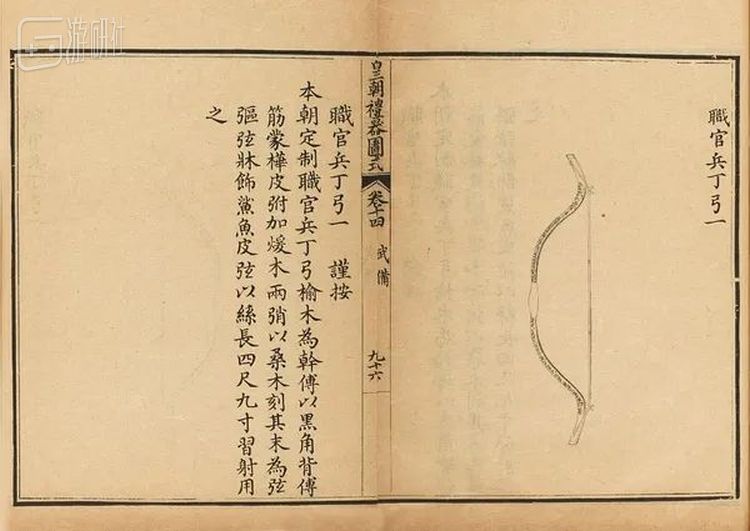 職官兵丁弓一
皇朝禮器圖式
卷十四
武備
九十六
職官兵丁弓一 謹按
本朝定制職官兵丁弓榆木為幹傅以黑角背傅
筋蒙樺皮附加煖木兩弰以桑木刻其末為弦
彄弦牀飾鯊魚皮弦以絲長四尺九寸習射用
之
游研社